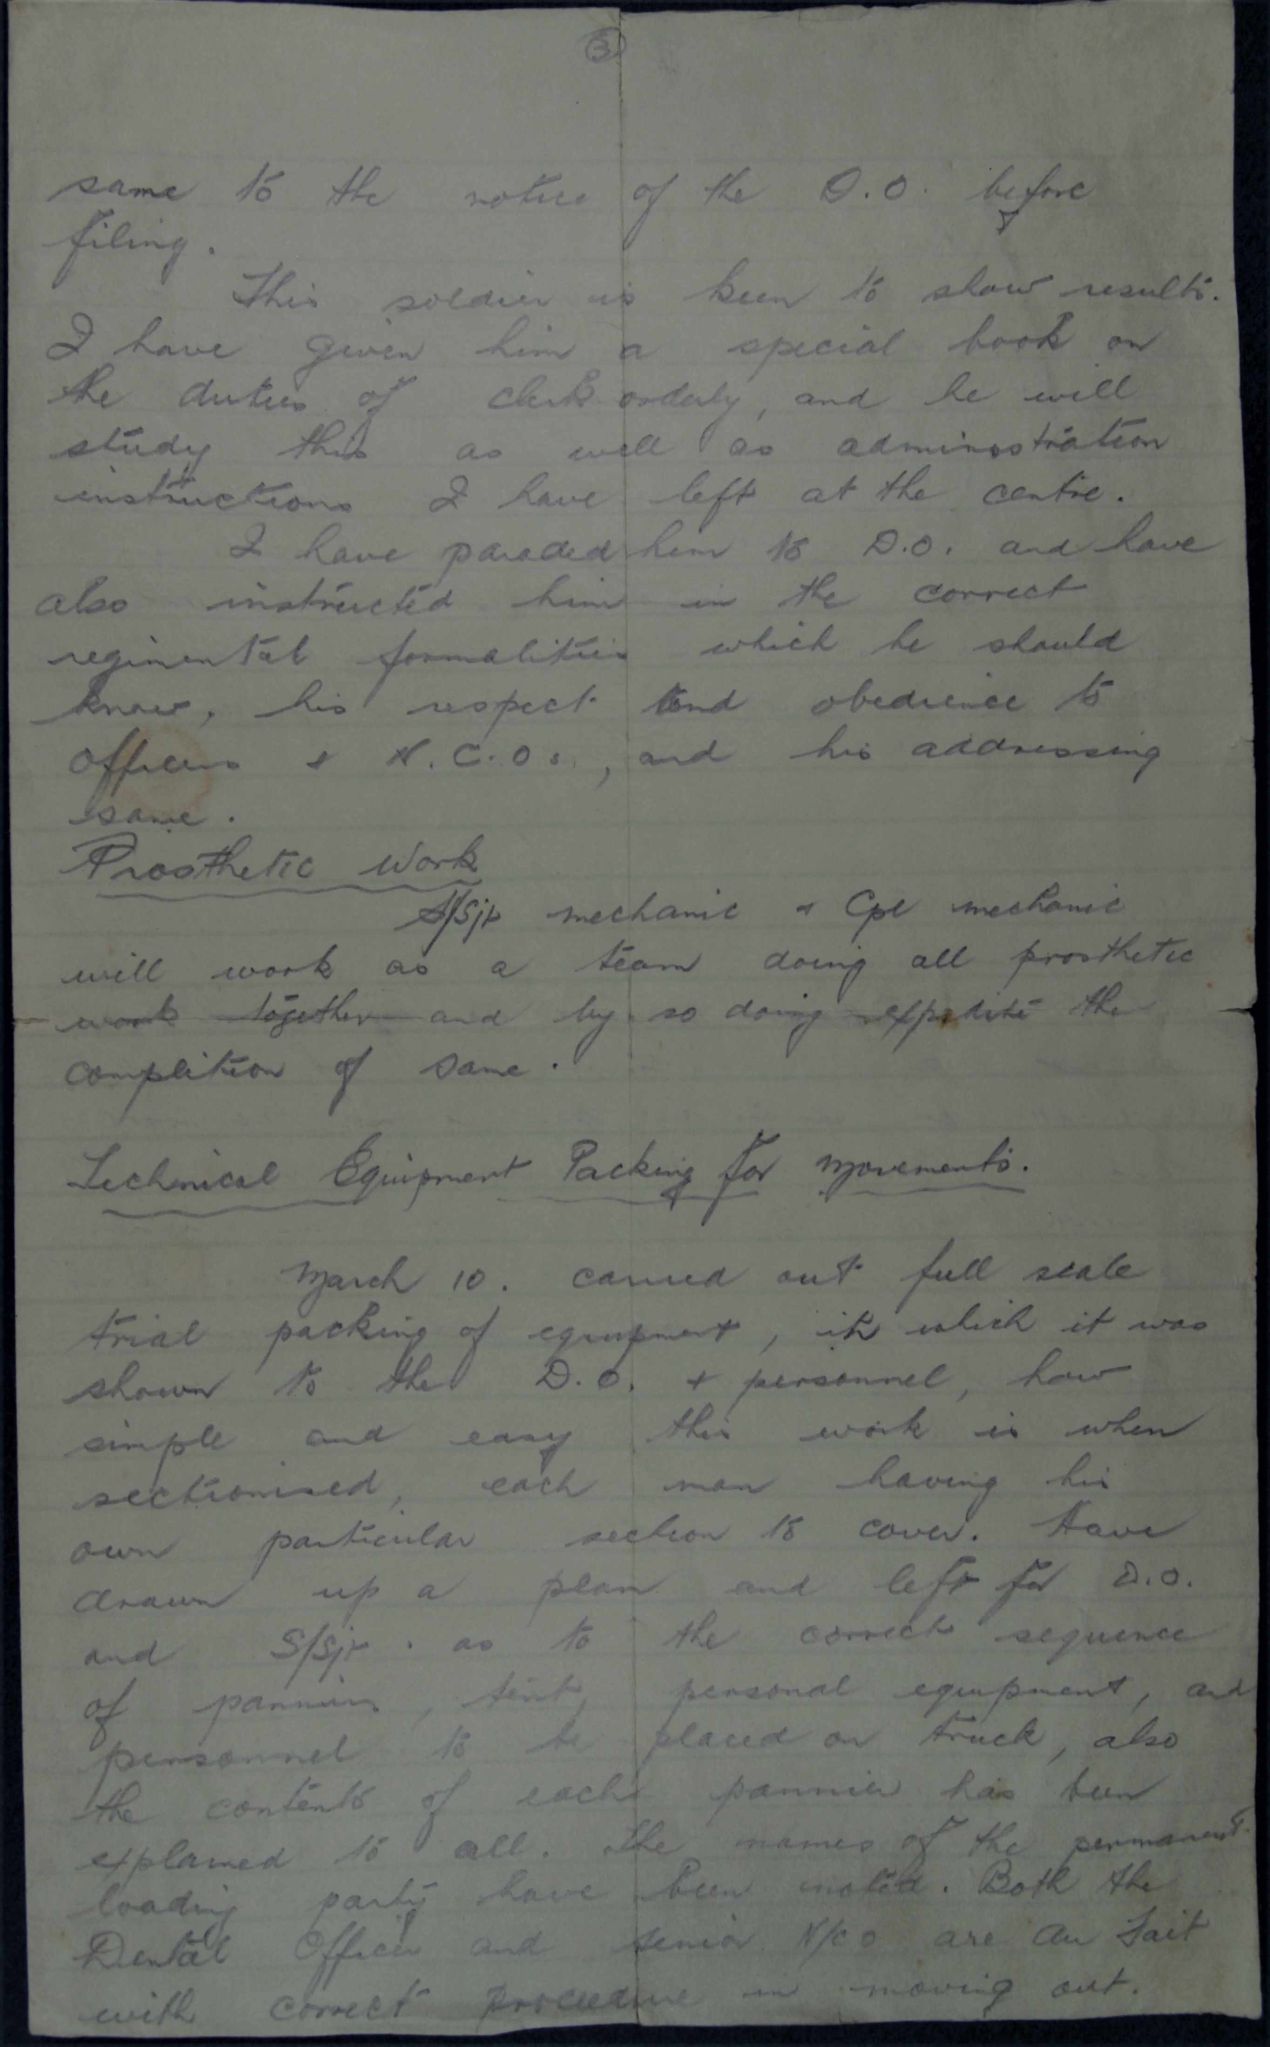 3
same to the notice of the D.O. before
filing.
This soldier is keen to show results.
I have given him a special book on
the duties of clerk orderly, and he will
study this as well as administration
instructions I have left at the centre.
I have paraded him to D.O. and have
also instructed him in the correct
regimental formalities which he should
know, his respect and obedience to
Officers & N.C.Os, and his addressing
same.
Prosthetic Work
S/Sjt mechanic & Cpl mechanic
will work as a team doing all prosthetic
work together and by so doing expedite the
complition of same.
Technical Equipment Packing for Movements.
March 10. carried out full scale
trial packing of equipment, in which it was
shown to the D.O. + personnel, how
simple and easy this work is when
sectionised, each man having his
own particular section to cover. Have
drawn up a plan and left for D.O.
and S/Sjt. as to the correct sequence
of panniers, tent, personal equipment, and
personnel to be placed on truck, also
the contents of each pannier has been
explained to all. The names of the permanent
loading party have been noted. Both the
Dental Officer and senior N/CO are au fait
with correct procedure in moving out.